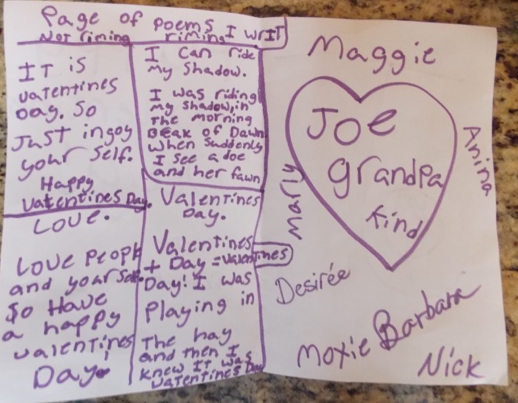 Page of poems I writ
Not rining
riming
IT is
valentines
Day. So
Just ingoy
your self.
Happy
Valentines Day.
Love.
Love people
and your self
So Have
a happy
valentines
Day.
I can ride
my shadow.
I was riding
my shadow, in
The morning
Beak of Dawn
When suddenly
I see a doe
and her fawn
Valentines
Day.
Valentines
+ Day = valentines
Day! I was
Playing in
The hay
and then I
knew IT was
Valentines Day
Maggie
Joe
grandpa
kind
Marly
Anina
Desirée
Moxie
Barbara
Nick